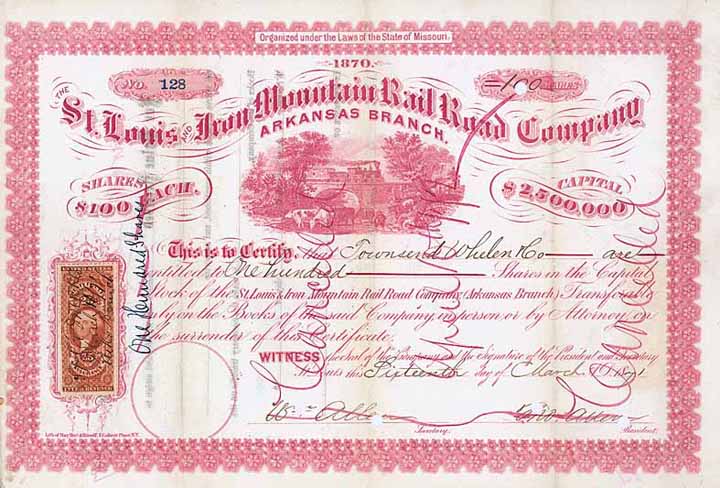 Organized under the Laws of the State of Missouri.
1870.
No. 128
100 SHARES
THE St. Louis AND Iron Mountain Rail Road Company
ARKANSAS BRANCH.
SHARES $100 EACH.
CAPITAL $2,500,000
One Hundred Shares
Cancelled
Cancelled
This is to Certify, that Townsend Whelen & Co are
entitled to One Hundred Shares in the Capital
Stock of the St. Louis & Iron Mountain Rail Road Company (Arkansas Branch) Transferable
only on the Books of the said Company in person or by Attorney on
the surrender of this Certificate.
WITNESS the Seal of the Company and the Signature of the President and Secretary
at St. Louis this Sixteenth day of March 1871
25
Secretary.
President.